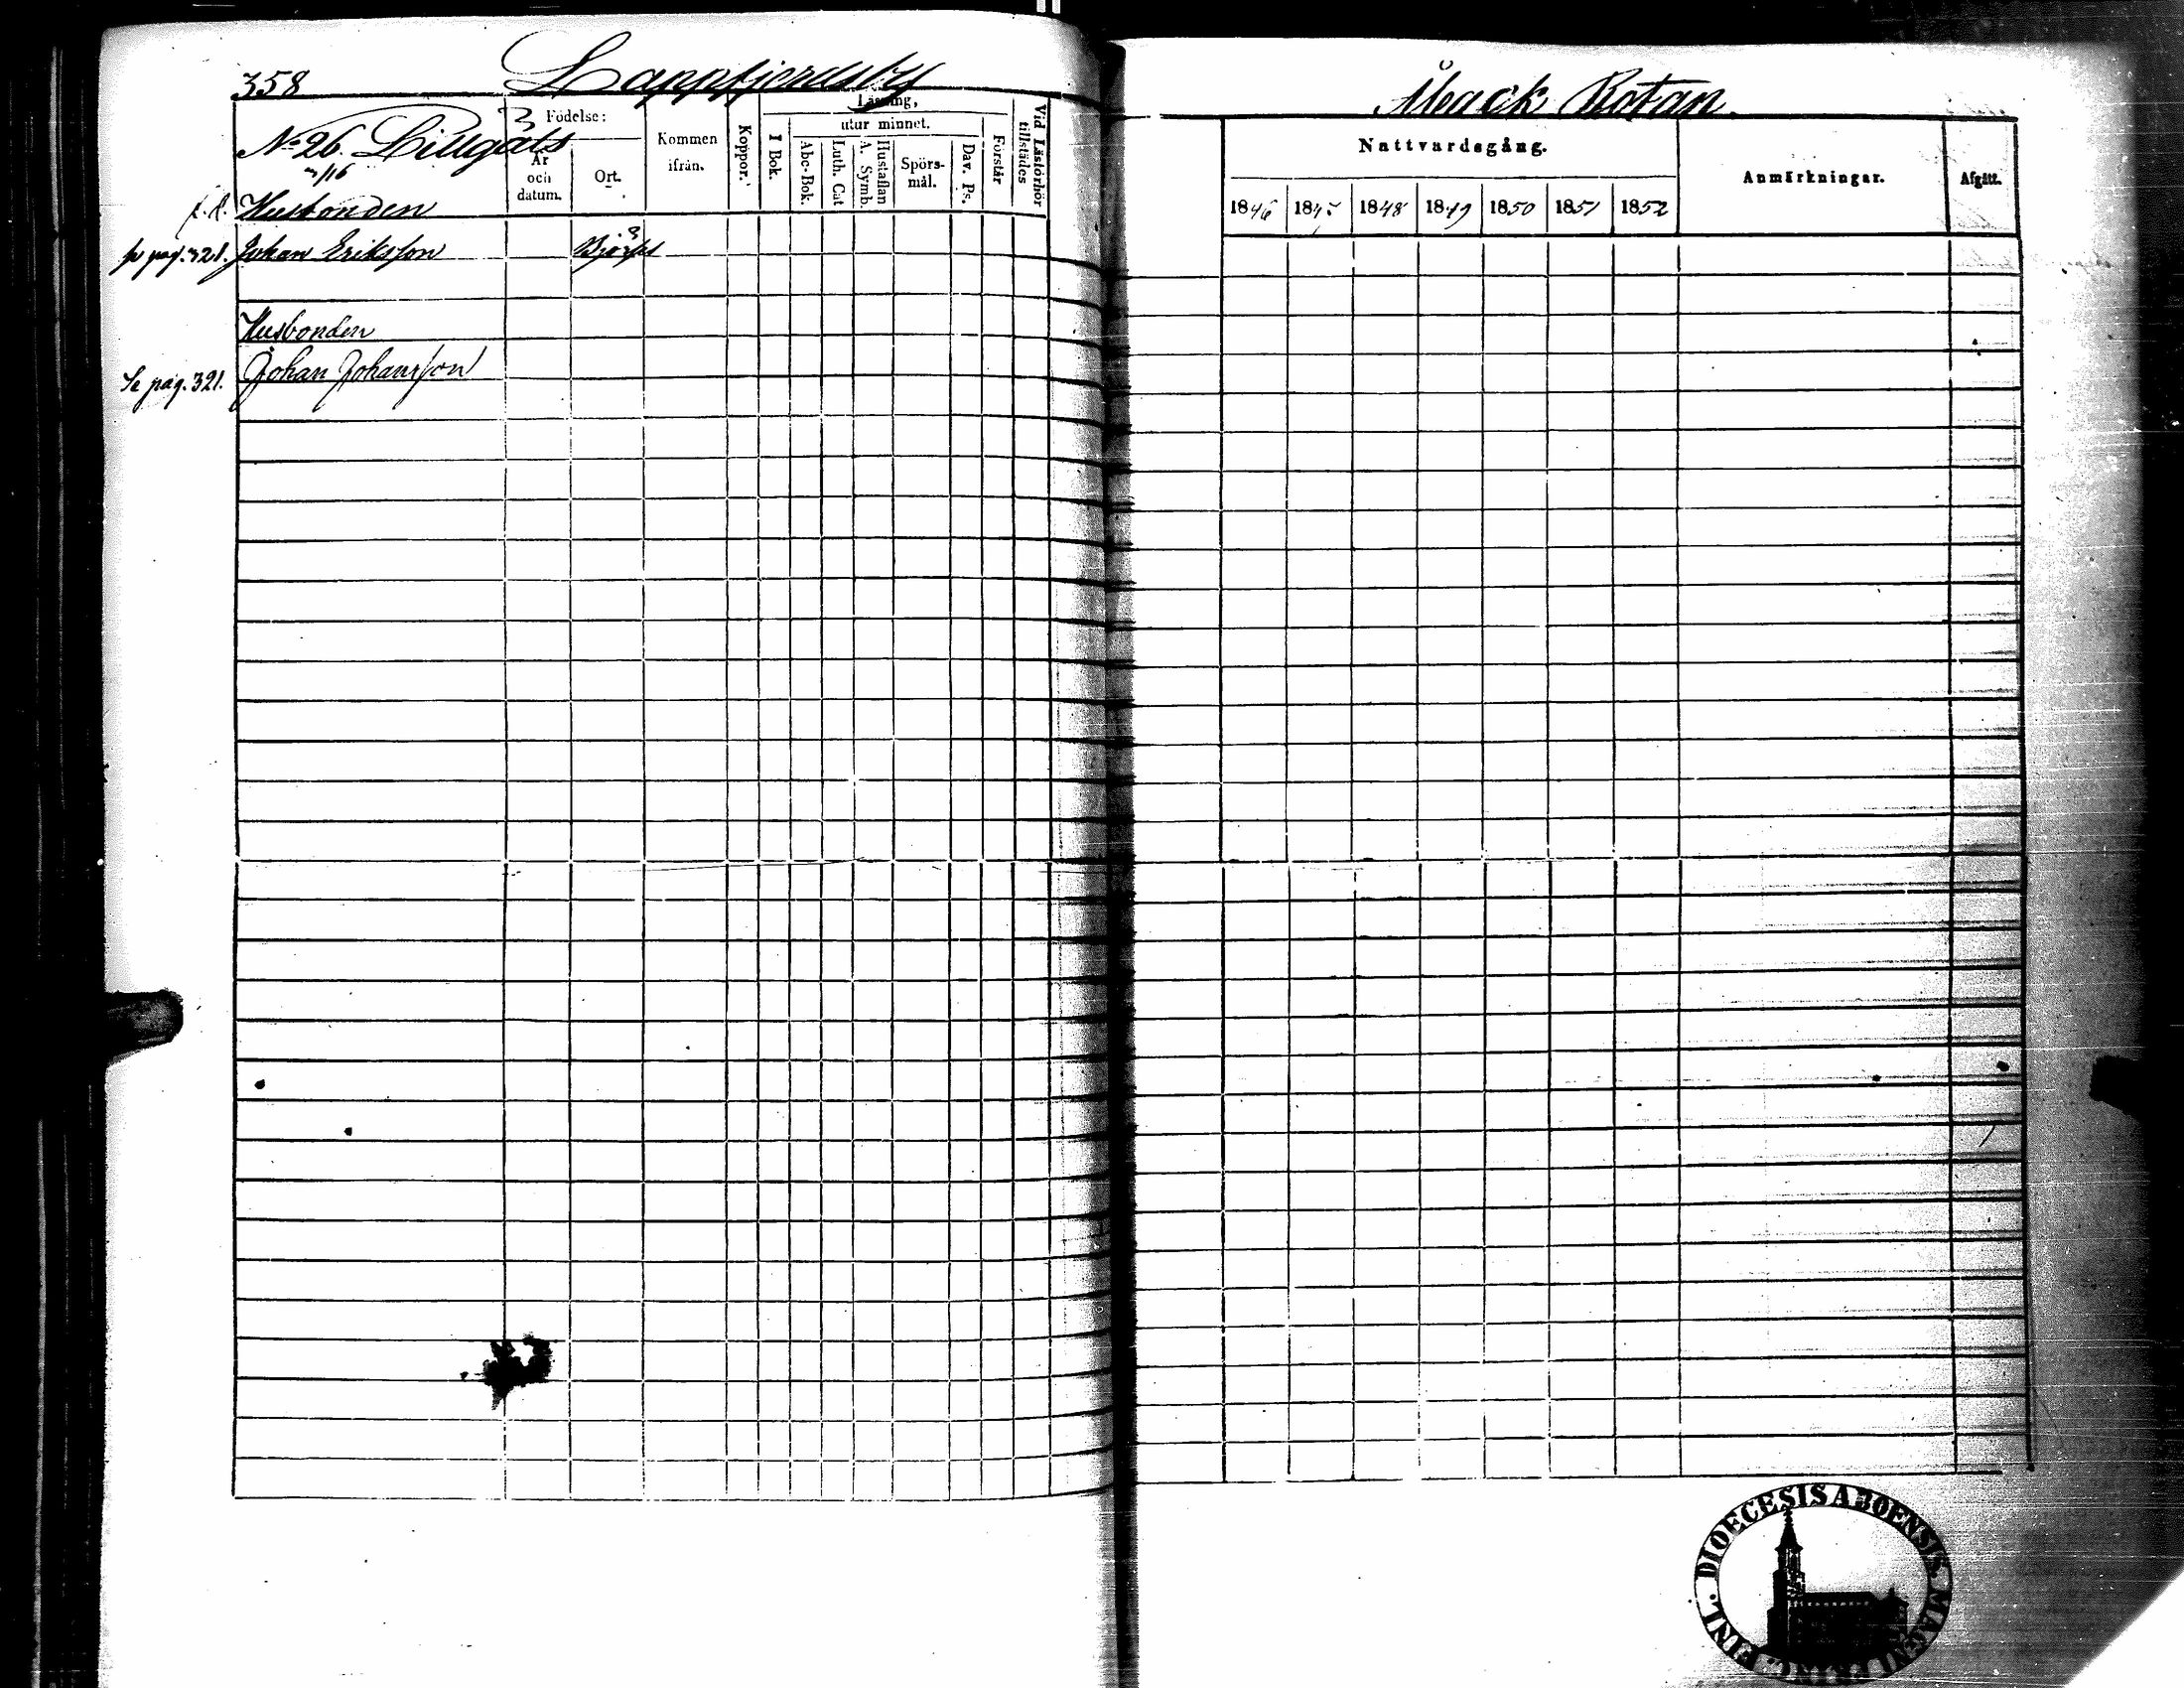 358 Lappfjerdsby
Åback Rotan.
No 26. Lillgäls
Födelse:
År och datum.
Ort.
Kommen ifrån.
Koppor.
Läsning,
I Bok.
utur minnet.
Abc-Bok.
Luth. Cat
Hustaflan
A. Symb.
Spörs-mål.
Dav. Ps.
Förstår
Vid Läsförhör tillstädes
Nattvardsgång.
1846 1847 1848 1849 1850 1851 1852
Anmärkningar.
Afgått.
f.d. Husbonden
se pag. 321. Johan Eriksson
Husbonden
Se pag. 321. Johan Johansson
DIOECESIS ABOENSIS. MAGNI PRINC. FINL.